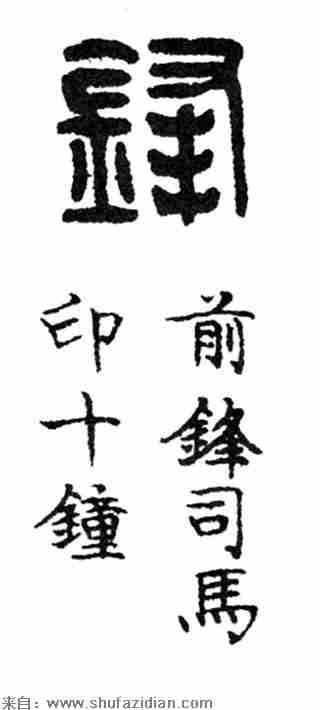 鋒
前鋒司馬
印十鐘
来自：www.shufazidian.com